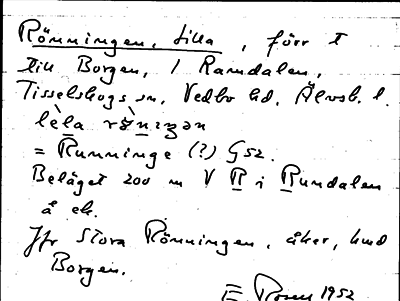 Rönningen, Lilla, förr t
till Borgen, / Ramdalen,
Tisselskogs sn, Vedbo hd, Älvsb. l.
= Runninge (?) G52.
Beläget 200 m V R i Rundalen
å ek.
Jfr Stora Rönningen, åker, hmd
Borgen.
E. Rosen 1952